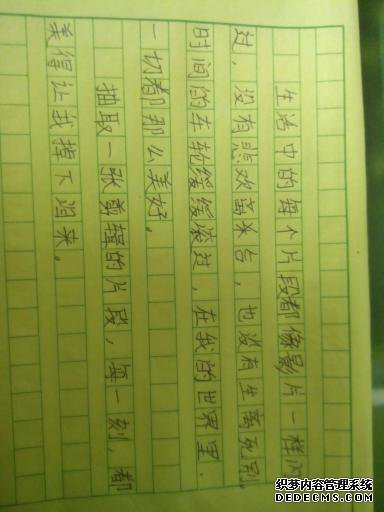 生活中的每个片段都像影片一样
过，没有悲欢离合，也没有生离死别，
时间的车轮缓缓滚过，在我的世界里.
一切都那么美好。
抽取一张剪辑的片段，每一刻，都
美得让我掉下泪来。
织梦内容管理系统
DEDECMS.COM